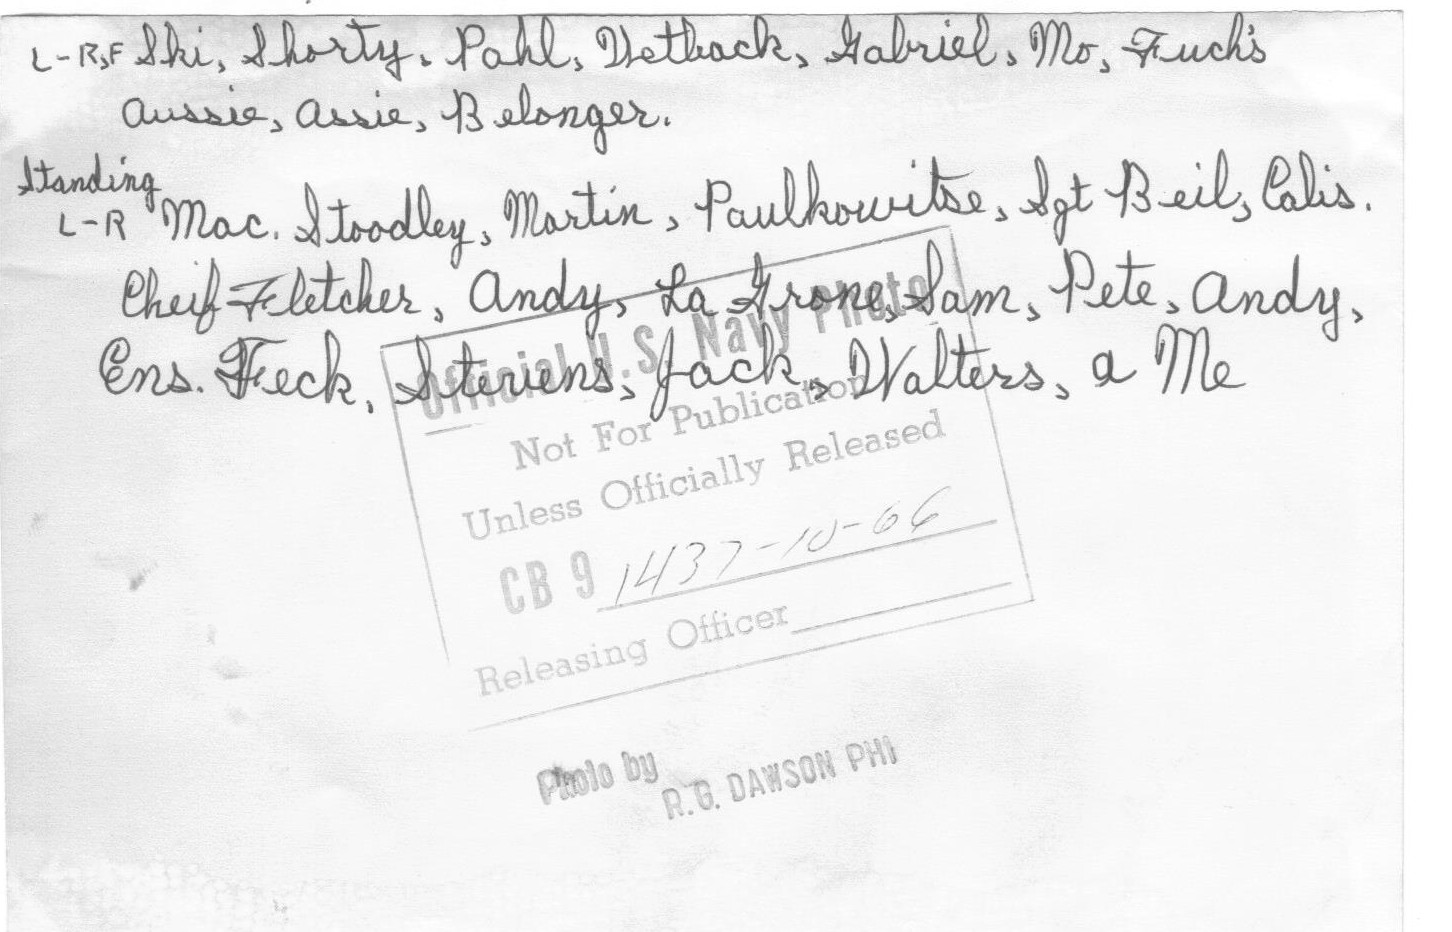 L-R,F Ski, Shorty, Pahl, Wetback, Gabriel, Mo, Fuch's
Aussie, Assie, Belonger.
Standing
L-R Mac. Stoodley, Martin, Paulkowitse, Sgt Beil, Calis.
Cheif Fletcher, Andy, La Grone, Sam, Pete, Andy,
Ens. Feck, Steriens, Jack, Walters, a Me
Official U.S. Navy Photo
Not For Publication
Unless Officially Released
CB 9 1437-10-66
Releasing Officer
Photo by
R.G. DAWSON PH1